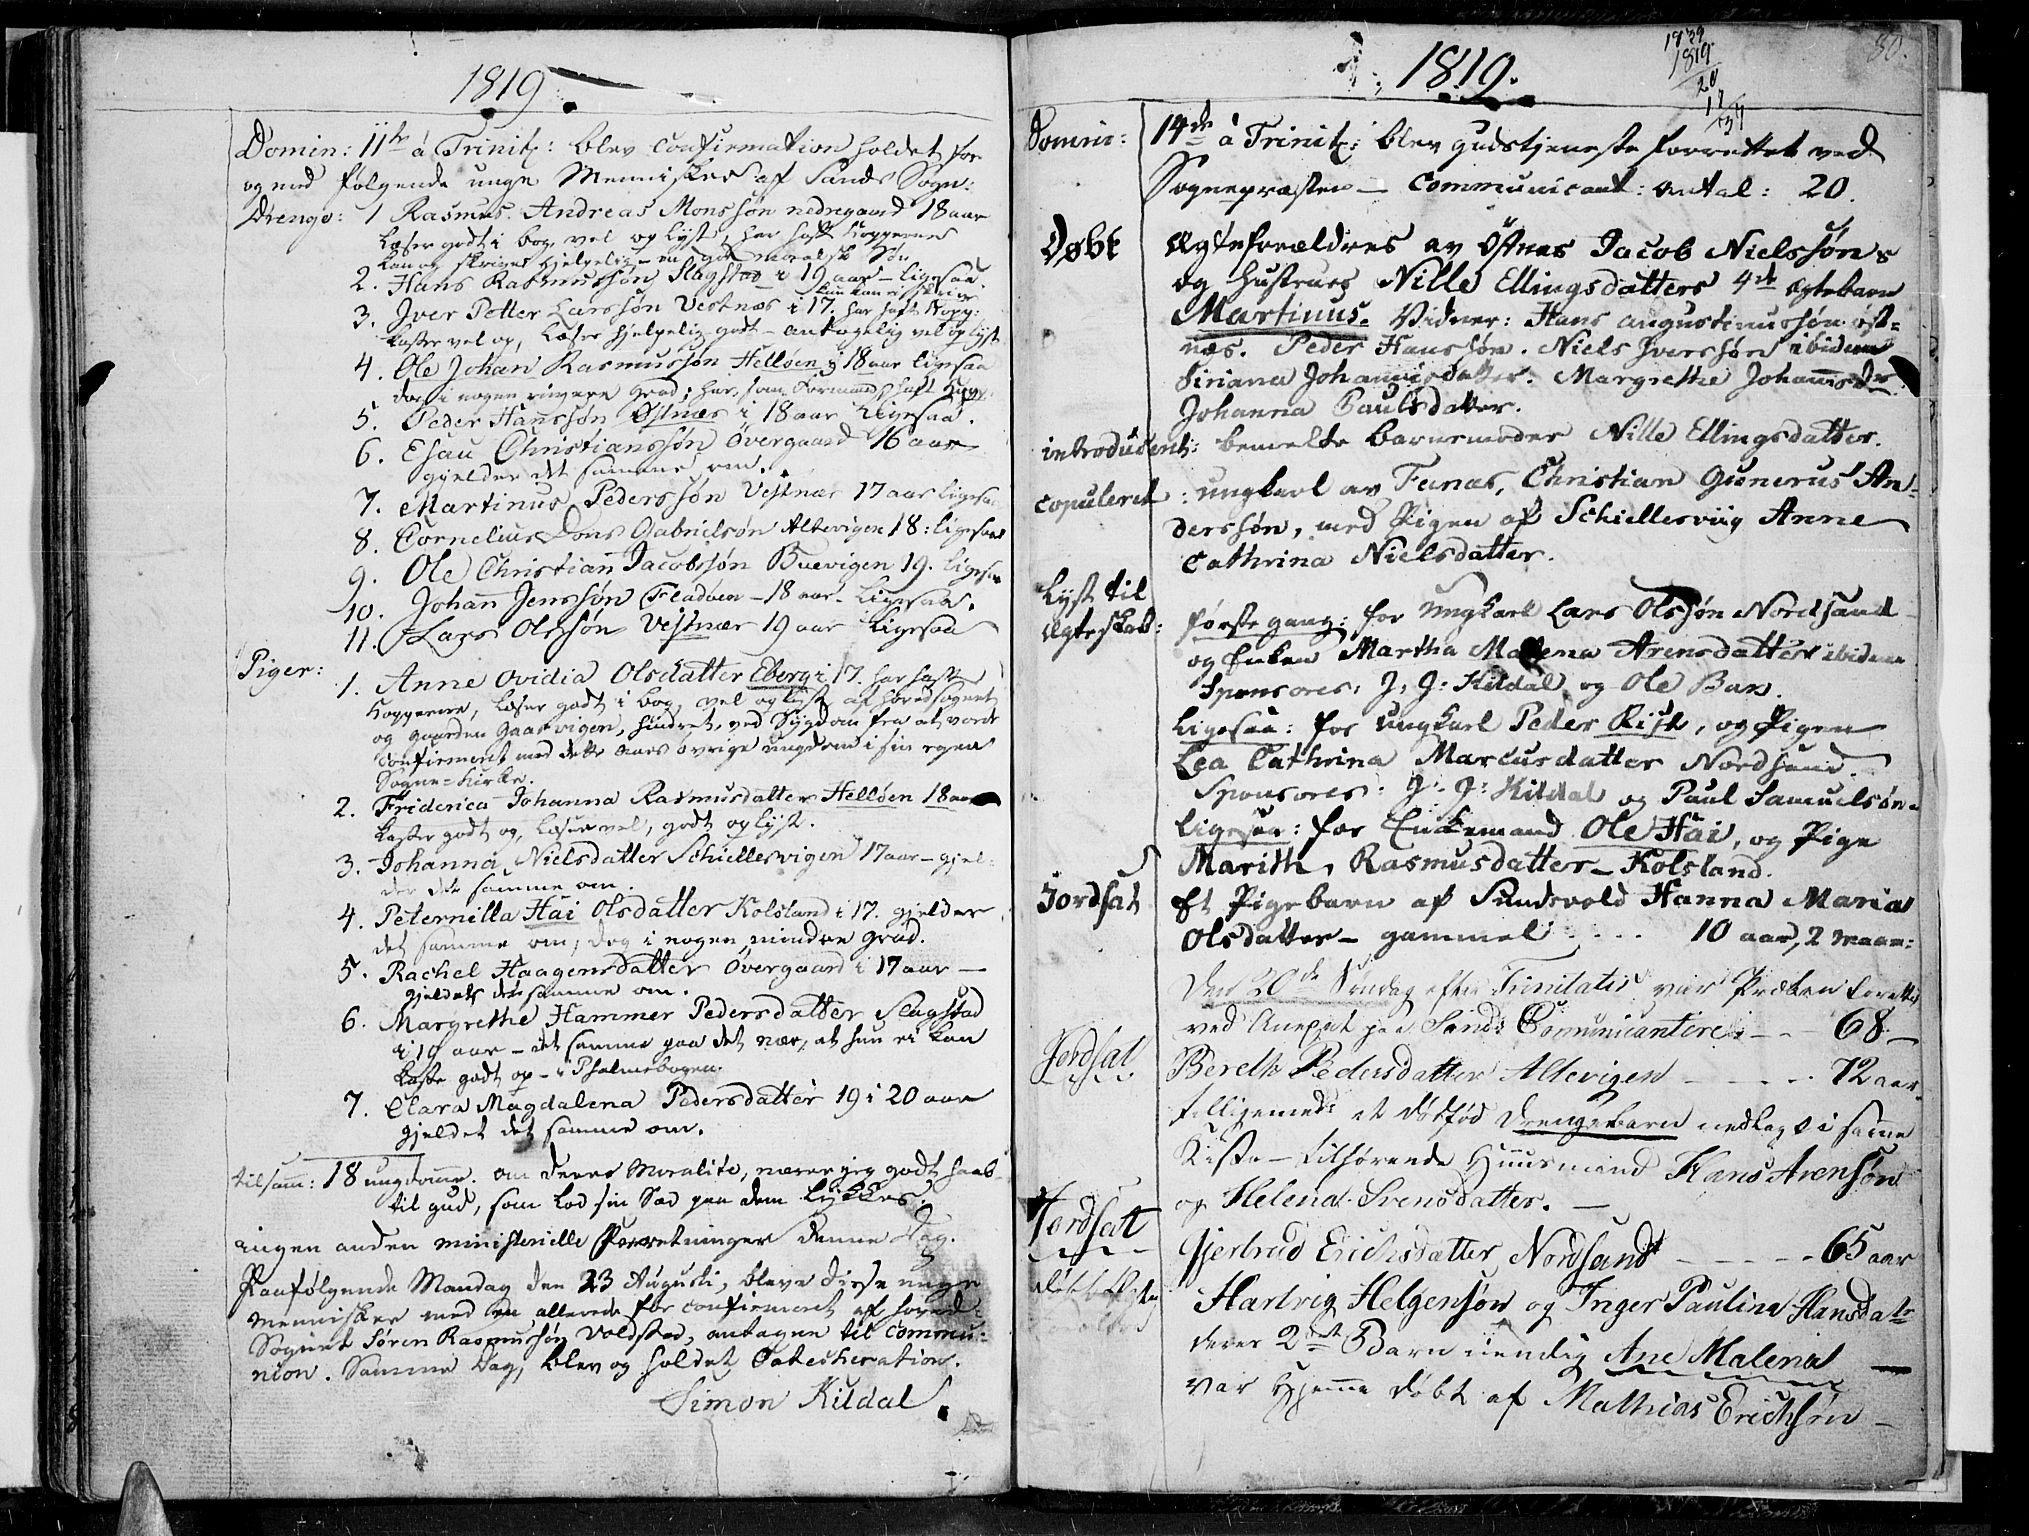 1819
Domin: 11te à Trinit: blev Confirmation holdet for
og med følgende unge Mennisker af Sands Sogn:
Drenge: 1 Rasmus Andreas Monssøn nedregaard 18 aar
læser godt i bog, vel oplyst, har haft Kopperne
kan og skrive hjelpelig - en god moralsk Søn
2. Hans Rasmussøn Slagstad i 19 aar - ligesaa.
kun kan ei skrive
3. Iver Petter Larssøn Vestnæs i 17. har haft Kopp:
kaster vel op, læser hjelpelig godt - antagelig vel oplyst
4. Ole Johan Rasmussøn Helløen i 18 aar ligesaa
dog i nogen ringere grad; har, som Formand, haft Kopp:
5. Peder Hanssøn Østnæs i 18 aar ligesaa.
6. Esau Christianssøn Övergaard 16 aar
gjelder det samme om.
7. Martinus Pederssøn Vestnæs 17 aar ligesaa
8. Cornelius Dons Gabrielsøn Altevigen 18: ligesaa
9. Ole Christian Jacobssøn Buevigen 19. ligesaa
10. Johan Jenssøn Fladøen - 18 aar - ligesaa.
11. Lars Olssøn Vestnæs 19 aar ligesaa
Piger:
1. Anne Ovidia Olsdatter Eberg i 17. har haft
Kopperne, læser godt i bog, vel oplyst af hovedsognet
og gaarden Gaasvigen, hindret, ved Sygdom fra at vorde
Confirmert med dette aars øvrige ungdom i sin egen
Sogne=Kirke.
2. Friderica Johanna Rasmusdatter Helløen 18 aar
kaster godt op, læser vel, godt oplyst.
3. Johanna Nielsdatter Schiellesvigen 17 aar - gjel-
der det samme om.
4. Peternilla Hái Olsdatter Kolsland i 17. gjelder
det samme om, dog i nogen mindre grad.
5. Rachel Haagensdatter Övergaard i 17 aar -
gjelder det samme om.
6. Margrethe Hammer Pedersdatter Slagstad
i 19 aar - det samme paa det nær, at hun ei kan
kaste godt op - i Psalmebogen.
7. Clara Magdalena Pedersdatter 19 i 20 aar
gjeldet det samme om.
tilsam: 18 ungdomme. om deres Moralite, nærer jeg godt haab
til gud, som lod sin Sæd paa dem lykkes.
ingen anden ministerielle Forretninger denne Dag.
Paafølgende Mandag den 23 Augusti, bleve disse unge
mennisker med en allerede før confirmeret af hoved-
Sognet Søren Rasmussøn Voldsted, antagen til Commu-
nion. Samme Dag, blev og holdet Catechisation.
Simon Kildal.
1819.
1839
1819
20
17
80.
Domin: 14de à Trinit: blev gudstjeneste forrettet ved
Sognepræsten - Communicant: antal: 20.
Døbt Ægteforældres av Östnæs Jacob Nielssøns
og hustrues Nille Ellingsdatters 4de ægtebarn
Martinus. Vidner: Hans Augustinussøn øst-
næs. Peder Hanssøn. Niels Iverssøn ibidem
Siriana Johannisdatter. Margrethe Johannisdr
Johanna Paulsdatter.
introduceret: bemelte barnemoder Nille Ellingsdatter.
copuleret: ungkarl av Fenæs, Christian Gunerus An-
derssøn, med Pigen af Schiellesviig Anne
Cathrina Nielsdatter.
Lyst til
Ægteskab: første gang: for ungkarl Lars Olssøn Nordsand
og Enken Martha Malena Arensdatter ibidem
Sponsores: J: J: Kildal og Ole Bax.
Ligesaa: for ungkarl Peder Rist, og Pigen
Lea Cathrina Marcusdatter Nordsand.
Sponsores: J: J: Kildal og Paul Samuelsøn
Ligesaa: for Enkemand Ole Hái, og Pige
Marith Rasmusdatter - Kolsland.
Jordsat Et Pigebarn af Sundsvold Hanna Maria
Olsdatter - gammel . . . . 10 aar, 2 maan:
Den 20de Søndag efter Trinitatis var Præken forrettet
ved Anexet paa Sand: Comunicantere: - - 68 -
Jordsat Bereth Pedersdatter Altevigen - - - - - 72 aar,
tilligemed: et dödföd Drengebarn nedlagt i same
Kiste - tilhørende Huusmand Hans Arensøn
og Helena Svensdatter. -
Jordsat Gjertrud Erichsdatter Nordsand - - - - - 65 aar
Hartvig Helgensøn og Inger Paulina Hansdatr
deres 2det Barn nemlig Ane Malena -
var hjeme døbt af Mathias Erichsøn -